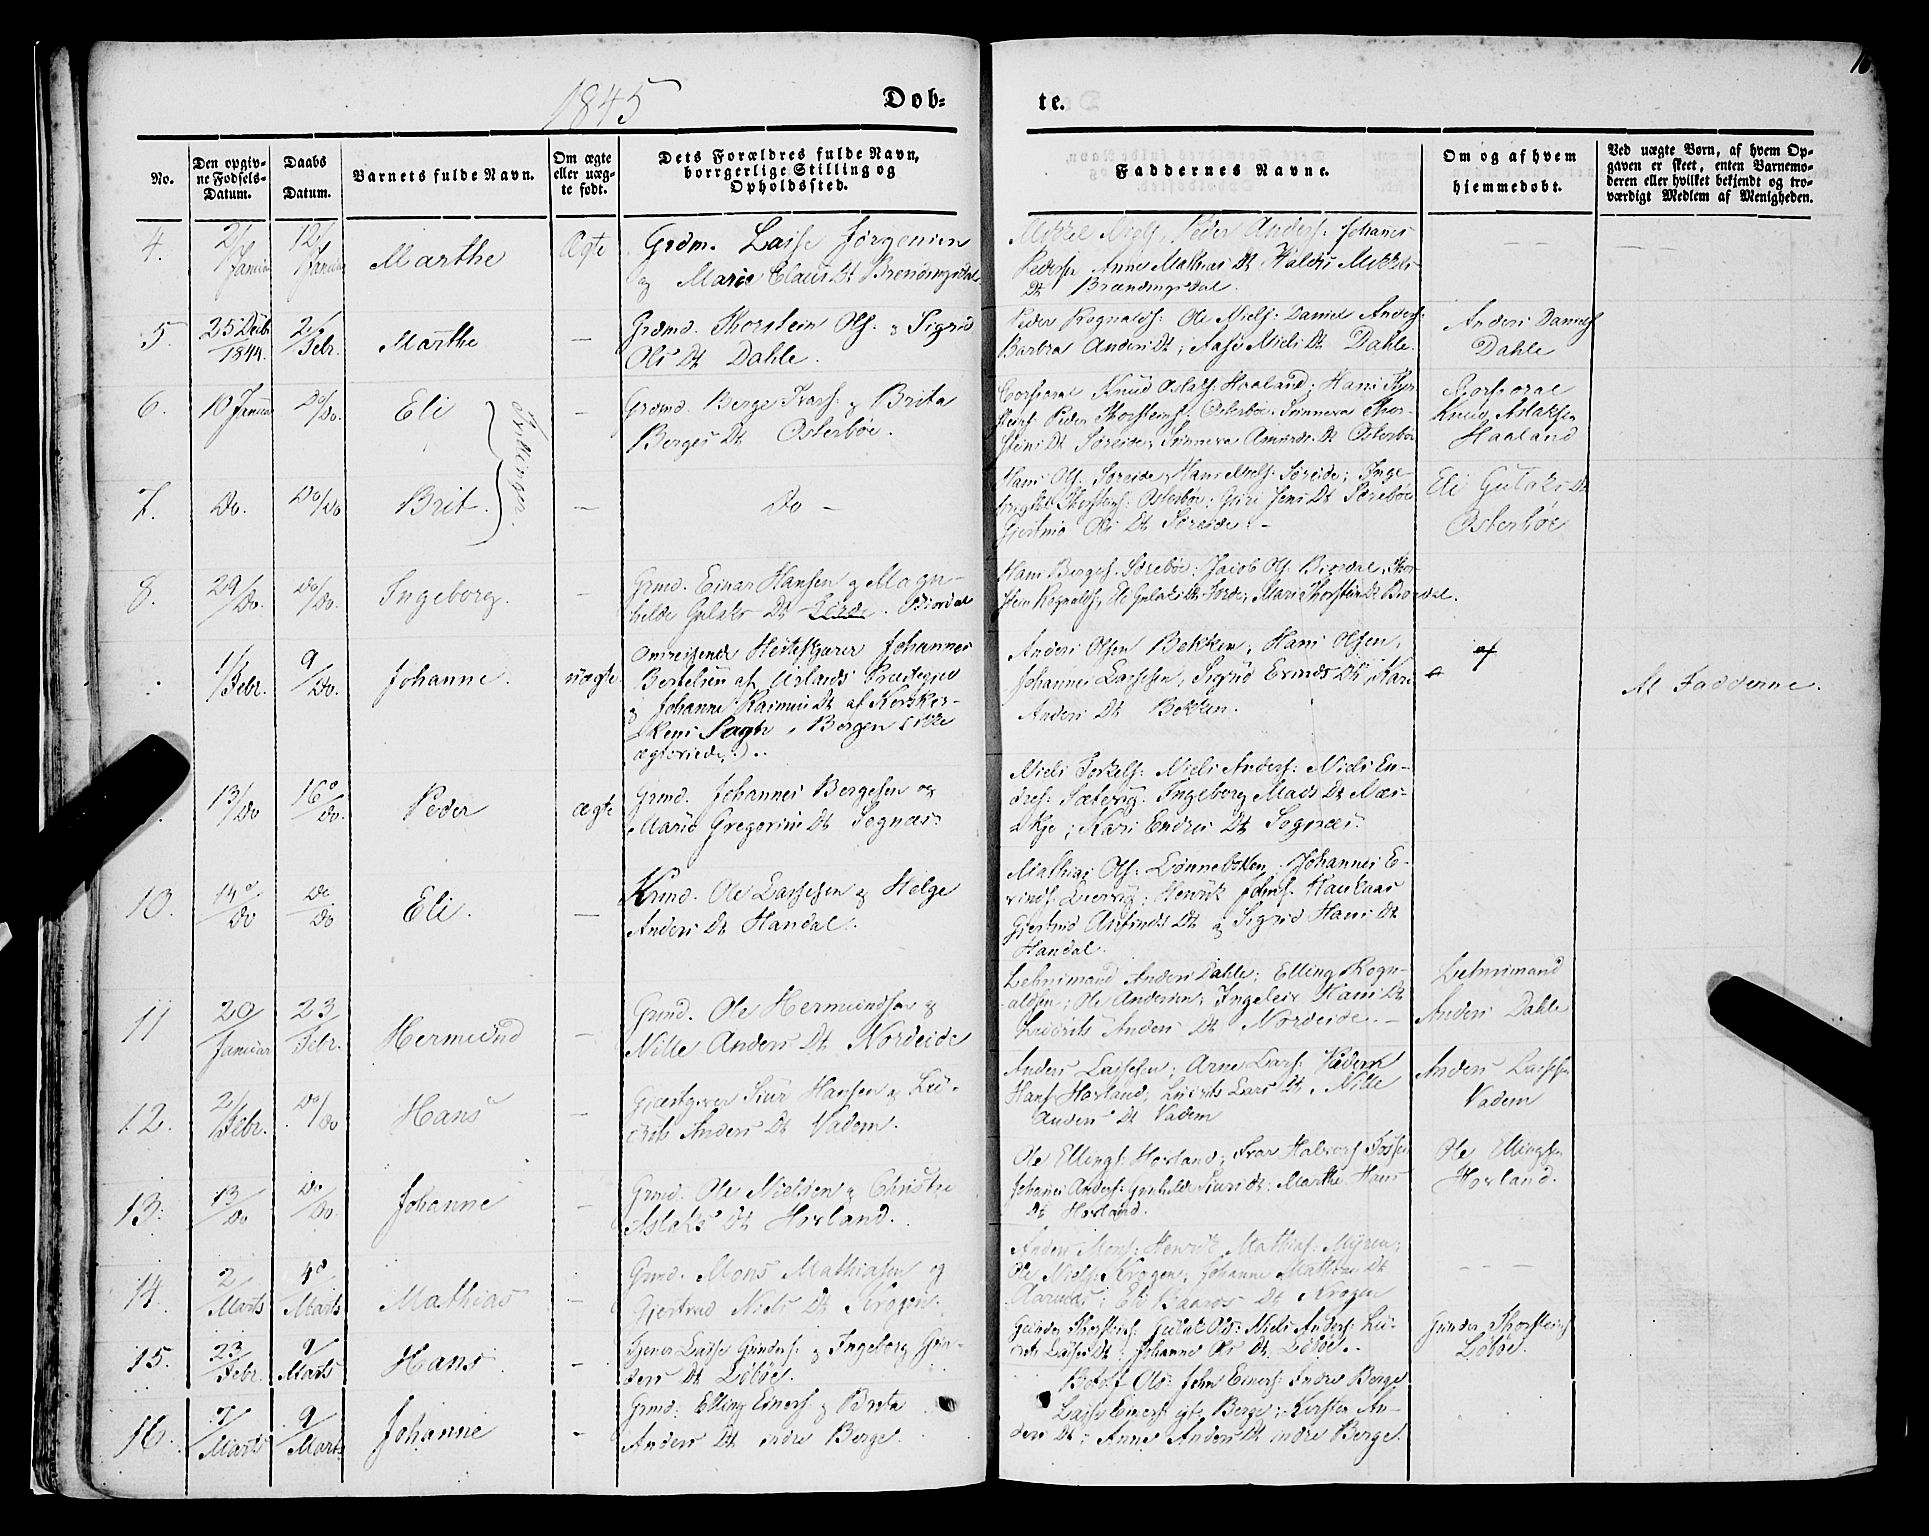 16
1845
Døb-
te.
No.
Den opgiv-
ne Fødsels-
Datum.
Daabs
Datum.
Barnets fulde Navn.
Om ægte
eller uæg-
te født.
Dets Forældres fulde Navn,
borgerlige Stilling og
Opholdssted.
Faddernes Navne.
Om og af hvem
hjemmedøbt.
Ved uægte Børn, af hvem Op-
gaven er skeet, enten Barnemo-
deren eller hvilket bekjendt og tro-
værdigt Medlem af Menigheden.
4.
2/Januar
12/Januar
Marthe
Ægte
Grdm. Lasse Jørgensen
og Marie Claus Dt Brendingsdal
Mikkel Niels. Peder Anders: Johanes
Pedersen Anne Mathias Dt
Dt Brændingsdal.
5.
25 Decbr
1844.
2/Febr.
Marthe
—
Grdmd. Thorstein Ols: & Sigrid
Ols Dt Dahle.
Peder Rognalds: Ole Niels: Daniel Anders:
Barbra Anders Dt; Aase Niels Dt Dahle.
Anders Daniels
Dahle
6.
10 Januar
Do/Do.
Eli
Tvillinger.
—
Grdmd. Berge Ivars: & Brita
Berges Dt Osterbøe.
Corporal Knud Aslaks: Haaland; Hans
Peder Thorsteins: Osterbøe, Sinneva Thor-
steins Dt Søreide, Sinneva Amunds Dt Osterbøe
Corporal
Knud Aslaksen
Haaland
7.
Do.
Do/Do
Brit.
—
Do —
Hans Ols: Søreide, Hans Niels: Søreide;
Thorsteins: Osterbøe; Guri Jens Dt Sørebøe
Gjertrud Ols Dt Søreide. -
Eli Gulaks Dt
Osterbøe
8.
29/Do.
Do/Do.
Ingeborg.
—
Grmd. Einar Hansen & Magn-
hilde Gulaks Dt Biordal
Hans Berges. Sørebøe; Jacob Ols: Biordal, Thor-
stein Rognalds:, Eli Gulaks Dt Førde; Mari Thorstein Dt Biordal.
1/Febr.
9/Do.
Johanne.
uægte
Omreisende Johannes
Bertelsen af Urlands Præstegjeld
& Johanne Rasmus Dt af Korskir-
kens Sogn i Bergen (ikke
ægteviede.)..
Anders Olsen Bekken, Hans Olsen,
Johannes Lassesen, Sigrid Erinds Dt, Kari
Anders Dt Bekken.
af
Af Fadderne.
13/Do
16de/Do.
Peder
ægte
Grmd. Johannes Bergesen og
Marie Gregorius Dt Sognæs.
Niels Torkels: Niels Anders: Niels En-
dres: Sætevig. Ingeborg Mads Dt Næs-
; Kari Endres Dt Sognæs.
10.
14de/Do
Do/Do
Eli.
—
Krmd. Ole Lassesen & Helge
Anders Dt Handal.
Mathias Ols: Lønnebotten, Johannes E-
rinds: Henrik Johns: Haukaas
Gjertrud Dt & Sigrid Hans Dt
Handal.
11
20/Januar
23/Febr.
Hermund
—
Grmd. Ole Hermundsen &
Nille Anders Dt Nordeide
Lehnsmand Anders Dahle; Elling Rogn-
aldsen; Ole Andersen; Ingeleiv Hans Dt
Anders Dt Nordeide. —
Lehnsmand
Anders Dahle
12.
2/Febr.
Do/Do
Hans
—
Gjæstgiver Siur Hansen & Lu-
Anders Dt Vadem.
Anders Lassesen; Arne Lars: Vadem
Hans Horland; Lars Dt, Nille
Anders Dt Vadem
Anders Lassesen
Vadem
13.
13/Do
Do/Do.
Johanne
—
Grmd. Ole Nielsen & Christi
Aslaks Dt Horland.
Ole Ellings: Horland; Ivar Halvors:
Johanes Anders: Siurs Dt: Marthe Hans
Dt Horland.
Ole Ellingsen
Horland.
14.
2/Marts
4de/Marts
Mathias
—
Grmd. Mons Mathiasen og
Gjertrud Niels Dt Krogen.
Anders Mons: Henrik Mathias: Myren;
Ole Niels: Krogen; Johanne Mathias Dt
Aarnæs; Eli Dt Krogen
— — —
15.
23/Febr.
9/Marts
Hans
—
Lasse Gunders: & Ingeborg Gun-
ders Dt Løbøe.
Gunder Thorsteins: Gulak Ols: Niels Anders: Lu-
Lasses Dt; Johanne Ols Dt Løbøe. -
Gunder Thorsteins
Løbøe.
16.
7/Marts
9/Marts
Johanne
-
Grmd. Elling Einers: & Brita
Anders Dt indre Berge
Botolf Ols: John Einers: Indre Berge
Lasse Einers: Berge; Kirsten An-
ders Dt; Anne Anders Dt indre Berge.